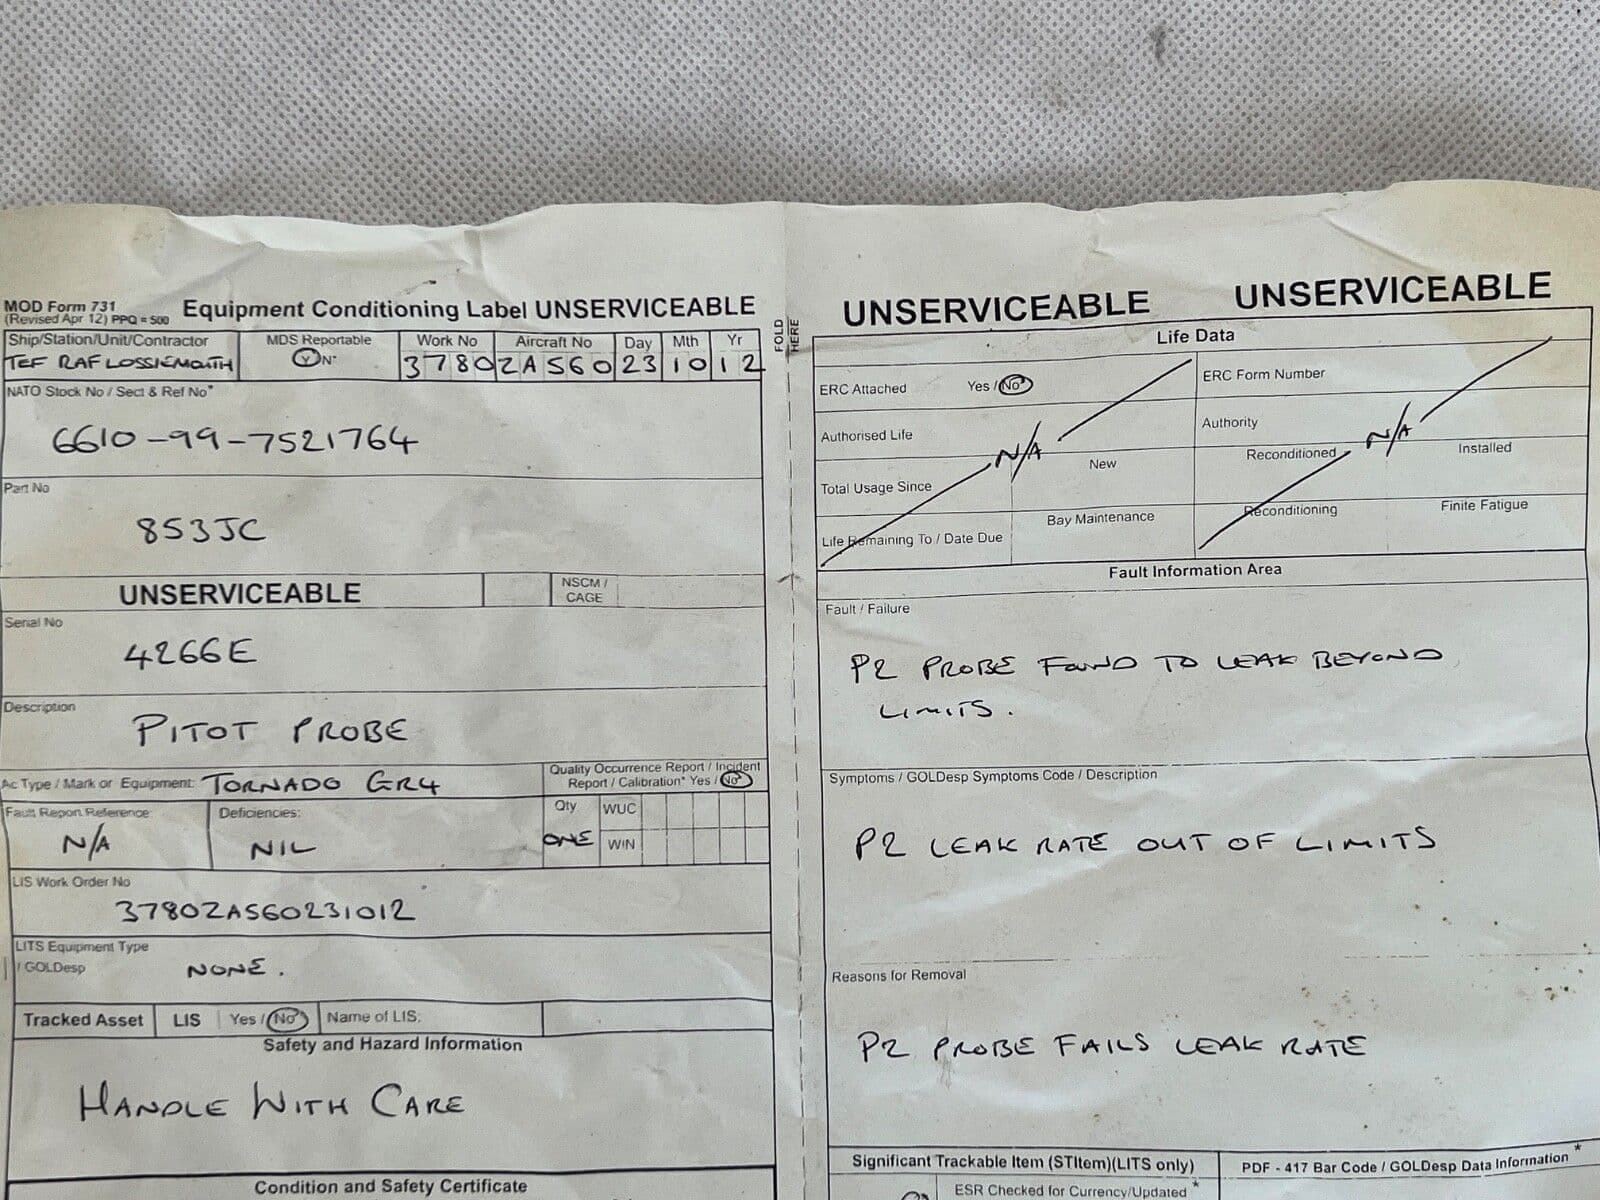 MOD Form 731
(Revised Apr 12) PPQ = 500
Equipment Conditioning Label UNSERVICEABLE
Ship/Station/Unit/Contractor
TEF RAF LOSSIEMOUTH
MDS Reportable
Y N*
Work No
3780
Aircraft No
ZA560
Day
23
Mth
10
Yr
12
NATO Stock No / Sect & Ref No*
6610-99-7521764
Part No
853JC
UNSERVICEABLE
NSCM /
CAGE
Serial No
4266E
Description
PITOT PROBE
Ac Type / Mark or Equipment: TORNADO GR4
Quality Occurrence Report / Incident
Report / Calibration* Yes / No*
Fault Report Reference:
N/A
Deficiencies:
NIL
Qty
ONE
WUC
WIN
LIS Work Order No
3780ZA560231012
LITS Equipment Type
/ GOLDesp
NONE.
Tracked Asset
LIS
Yes / No*
Name of LIS:
Safety and Hazard Information
HANDLE WITH CARE
Condition and Safety Certificate
FOLD
HERE
UNSERVICEABLE UNSERVICEABLE
Life Data
ERC Attached Yes / No*
ERC Form Number
Authorised Life
N/A
Authority
N/A
Total Usage Since
New
Reconditioned
Installed
Life Remaining To / Date Due
Bay Maintenance
Reconditioning
Finite Fatigue
Fault Information Area
Fault / Failure
P2 PROBE FOUND TO LEAK BEYOND
LIMITS.
Symptoms / GOLDesp Symptoms Code / Description
P2 LEAK RATE OUT OF LIMITS
Reasons for Removal
P2 PROBE FAILS LEAK RATE
Significant Trackable Item (STItem)(LITS only)
PDF - 417 Bar Code / GOLDesp Data Information *
ESR Checked for Currency/Updated *